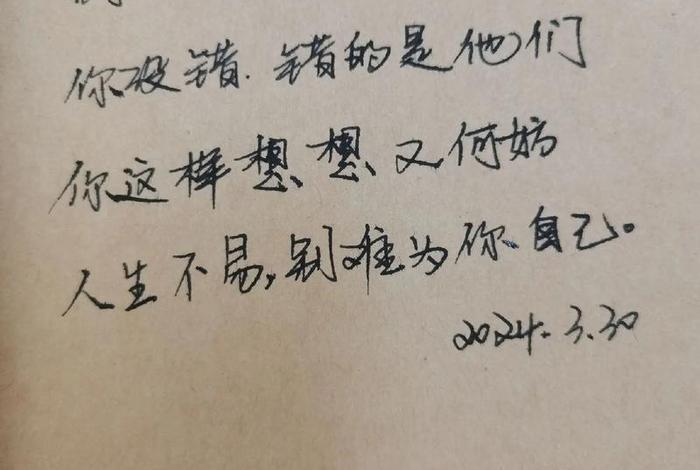 你没错.错的是他们
你这样想想又何妨
人生不易,别难为你自己。
2024.3.30